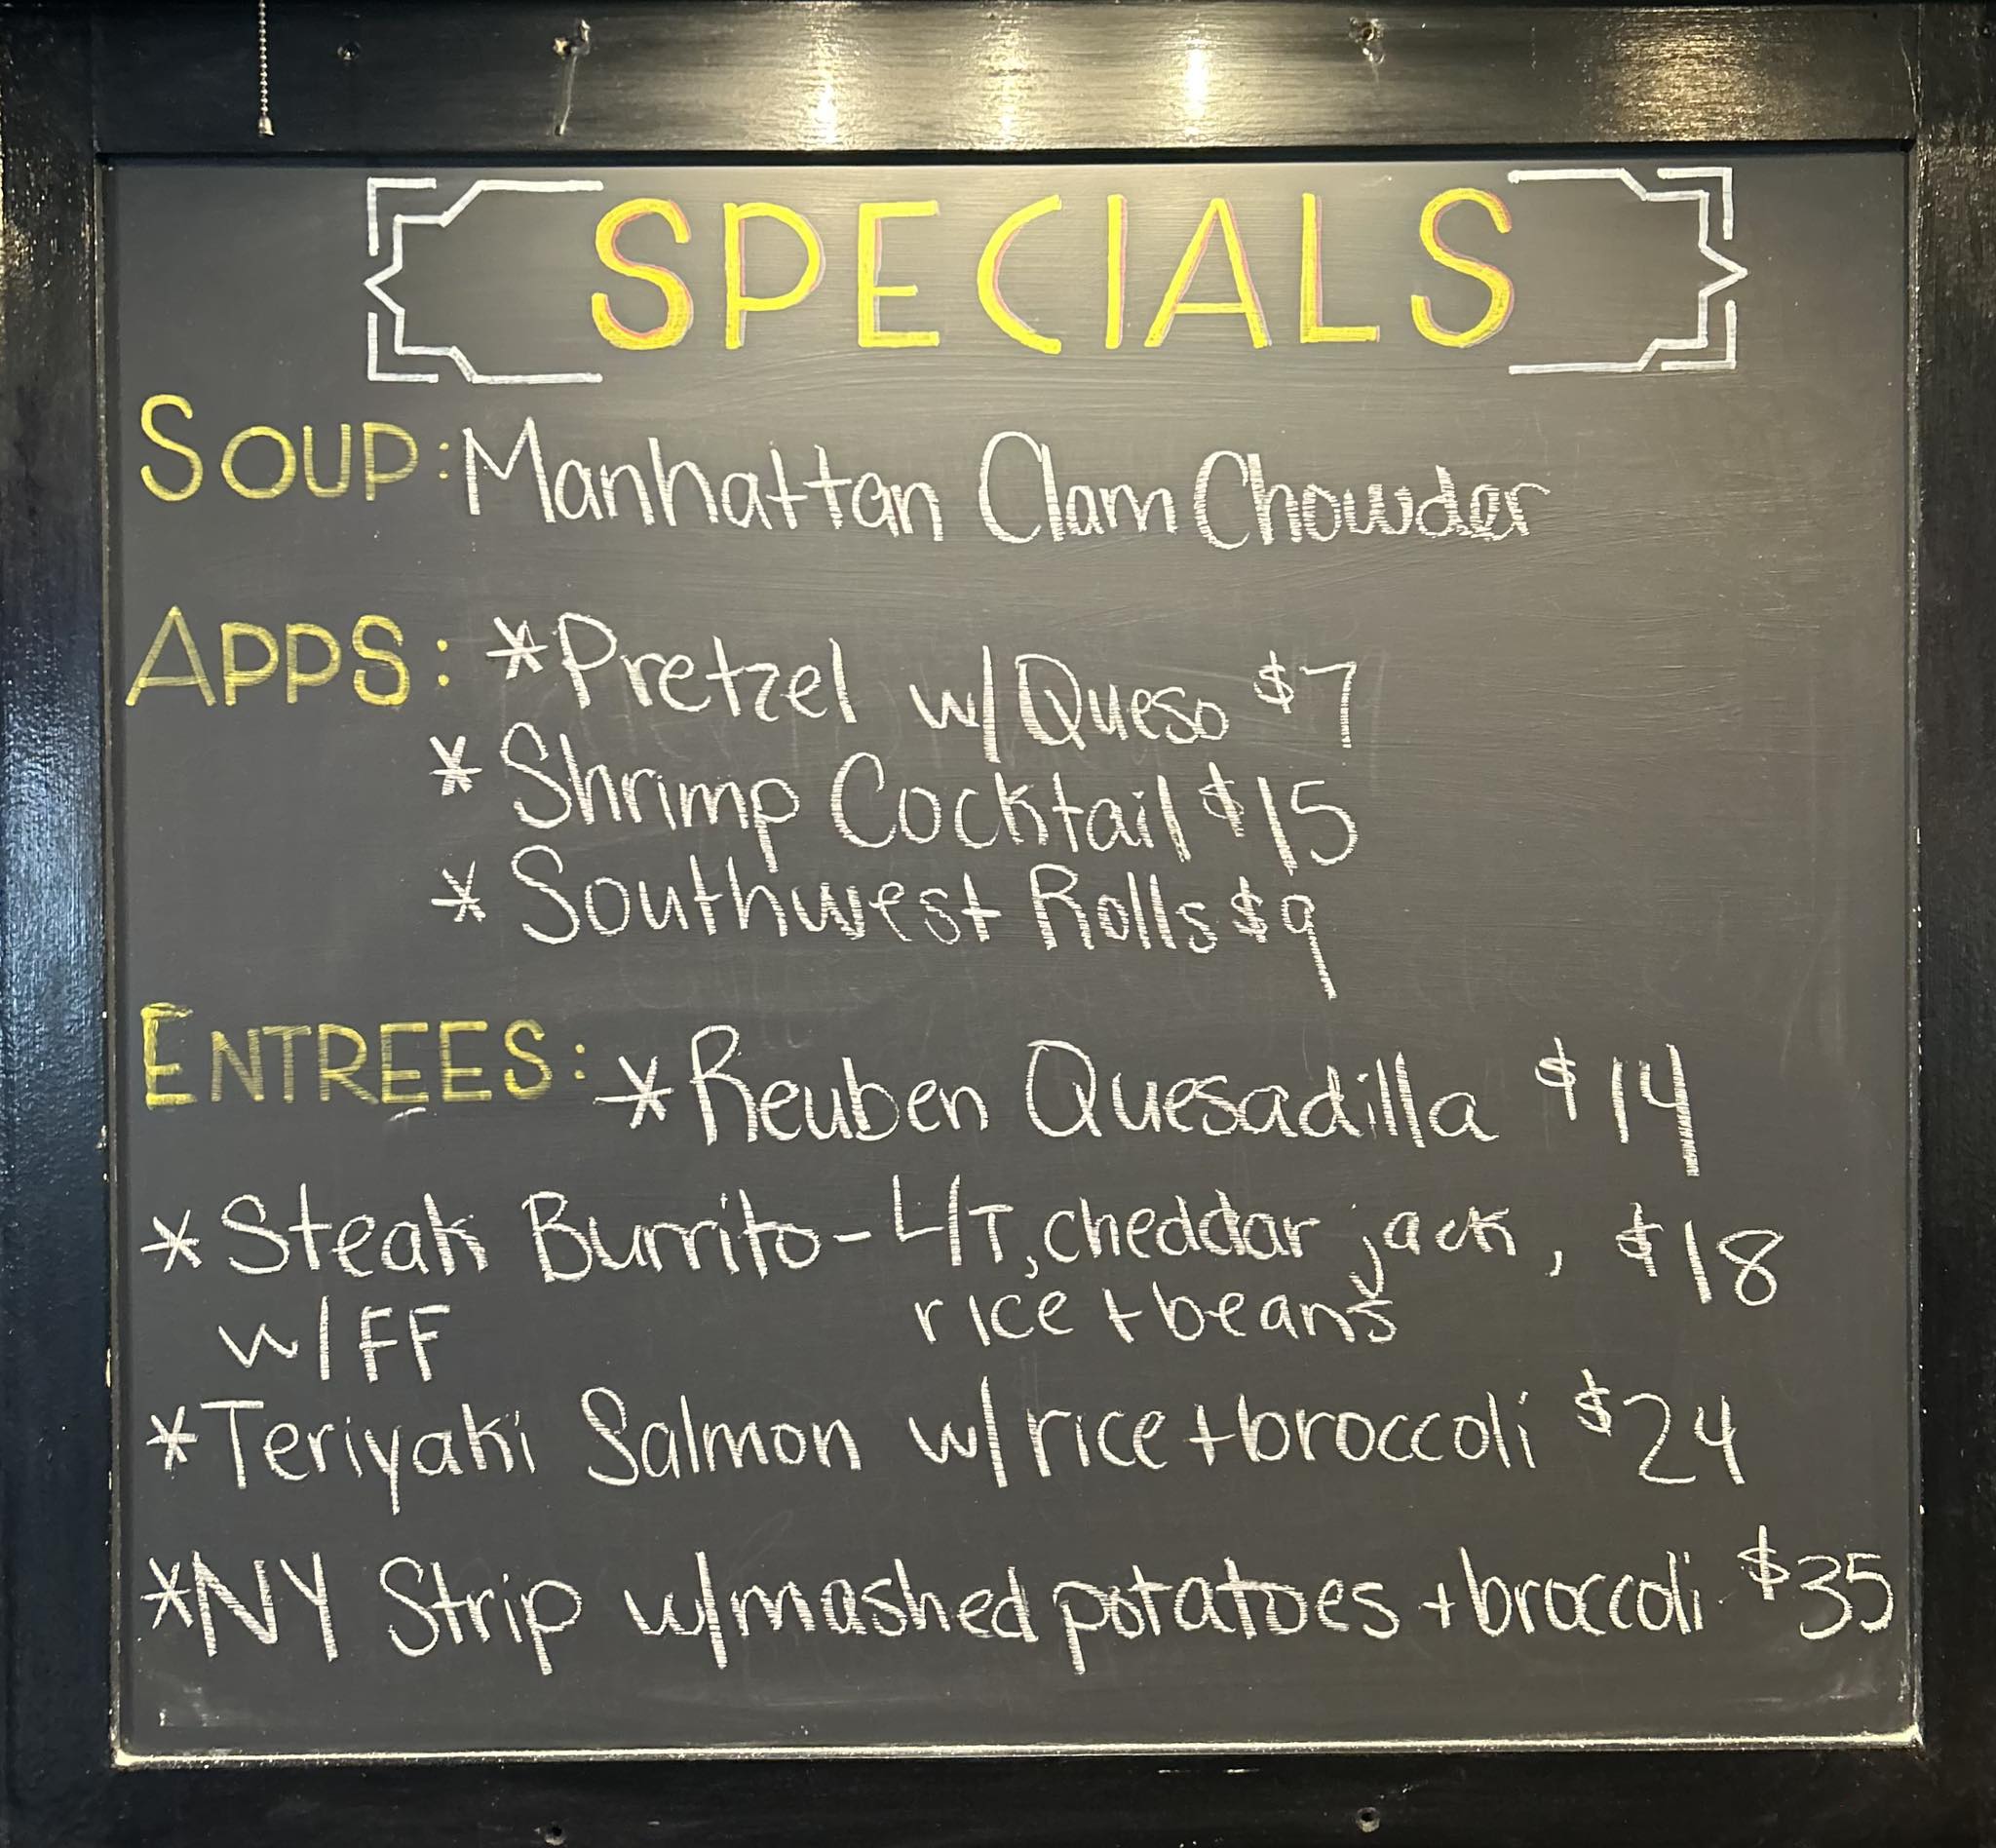 SPECIALS
SOUP: Manhattan Clam Chowder
APPS: *Pretzel w/Queso $7
* Shrimp Cocktail $15
* Southwest Rolls $9
ENTREES: *Reuben Quesadilla $14
*Steak Burrito - L/T, cheddar jack, $18
w/FF rice + beans
*Teriyaki Salmon w/rice + broccoli $24
*NY Strip w/mashed potatoes + broccoli $35